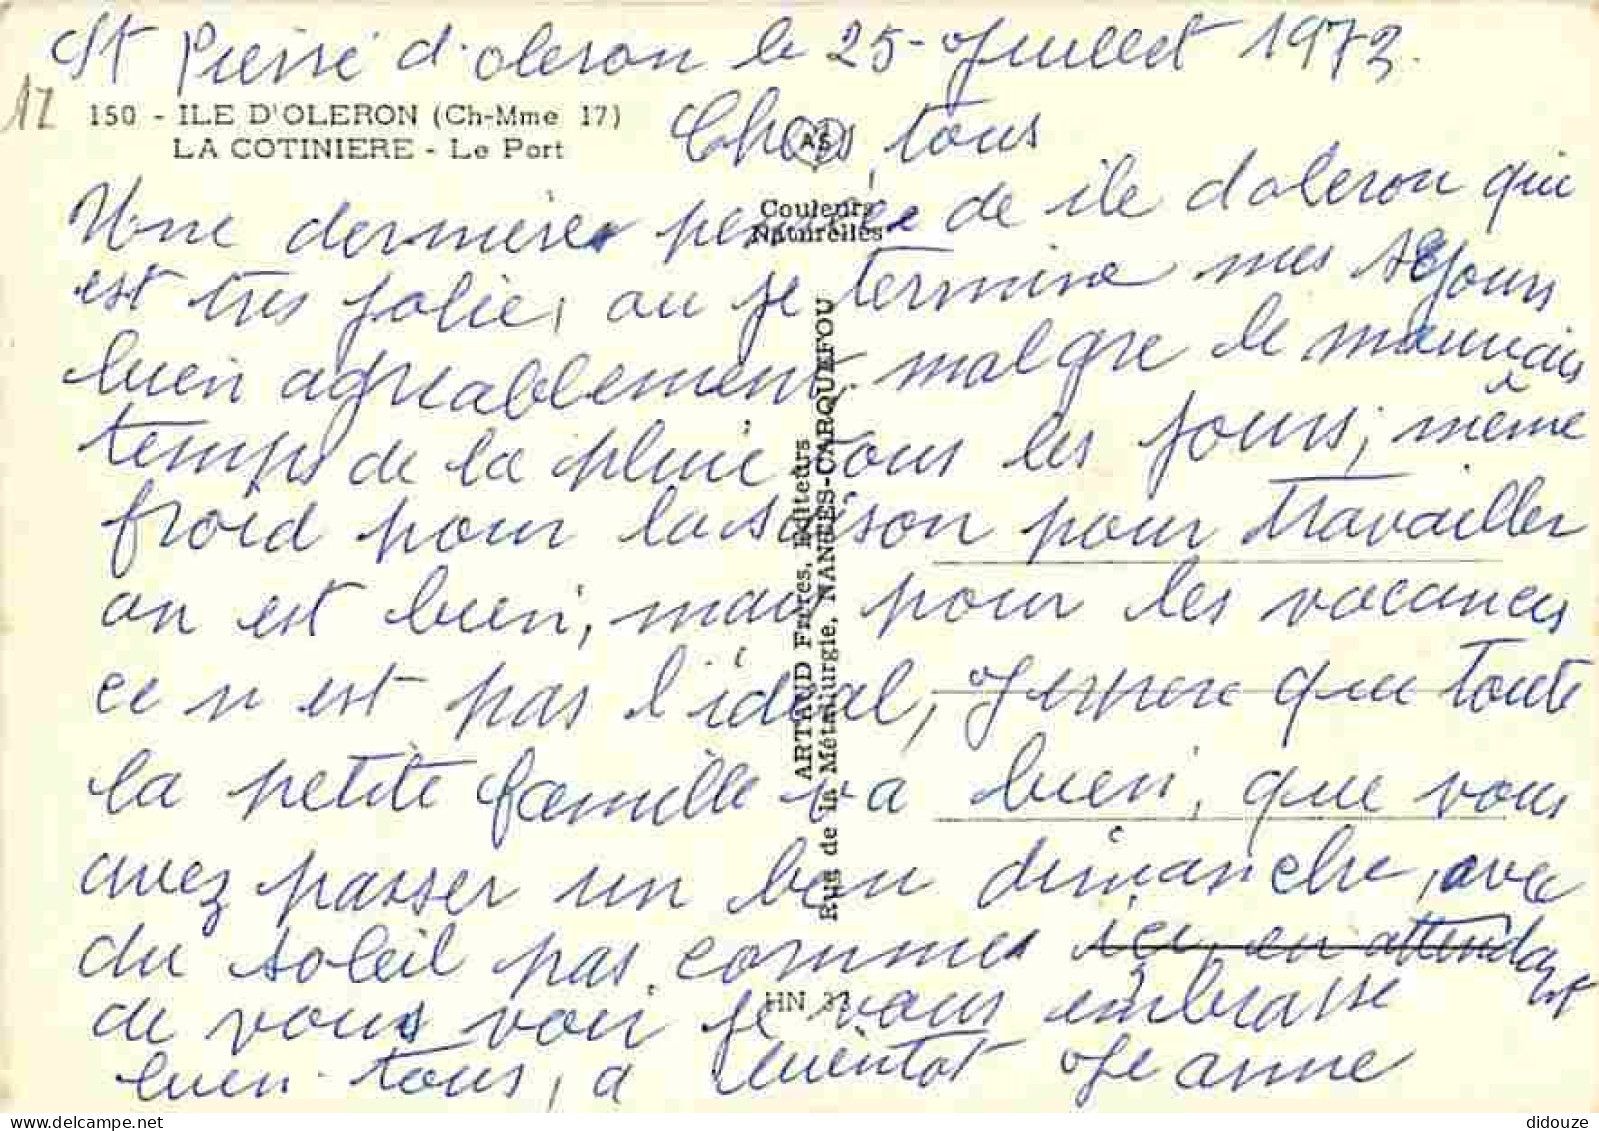 St Pierre d'oleron le 25- Juillet 1973.
17
150 - ILE D'OLERON (Ch-Mme 17)
LA COTINIERE - Le Port
Chers tous
AS
Couleurs
Naturelles
Une dernière pensée de ile d oleron qui
est tres jolie, ou je termine mes séjours
bien agreablement, malgre le mauvais
temps de la pluie tous les jours, même
froid pour la saison pour travailler
on est bien, mais pour les vacances
ce n est pas l'idéal, J espere que toute
la petite famille va bien, que vous
avez passer un bon dimanche, avec
du soleil pas comme ici, en attendant
de vous voir je vous embrasse
bien tous, a bientot Jeanne
ARTAUD Frères, Editeurs
Rue de la Métallurgie, NANTES-CARQUEFOU
HN 33
didouze